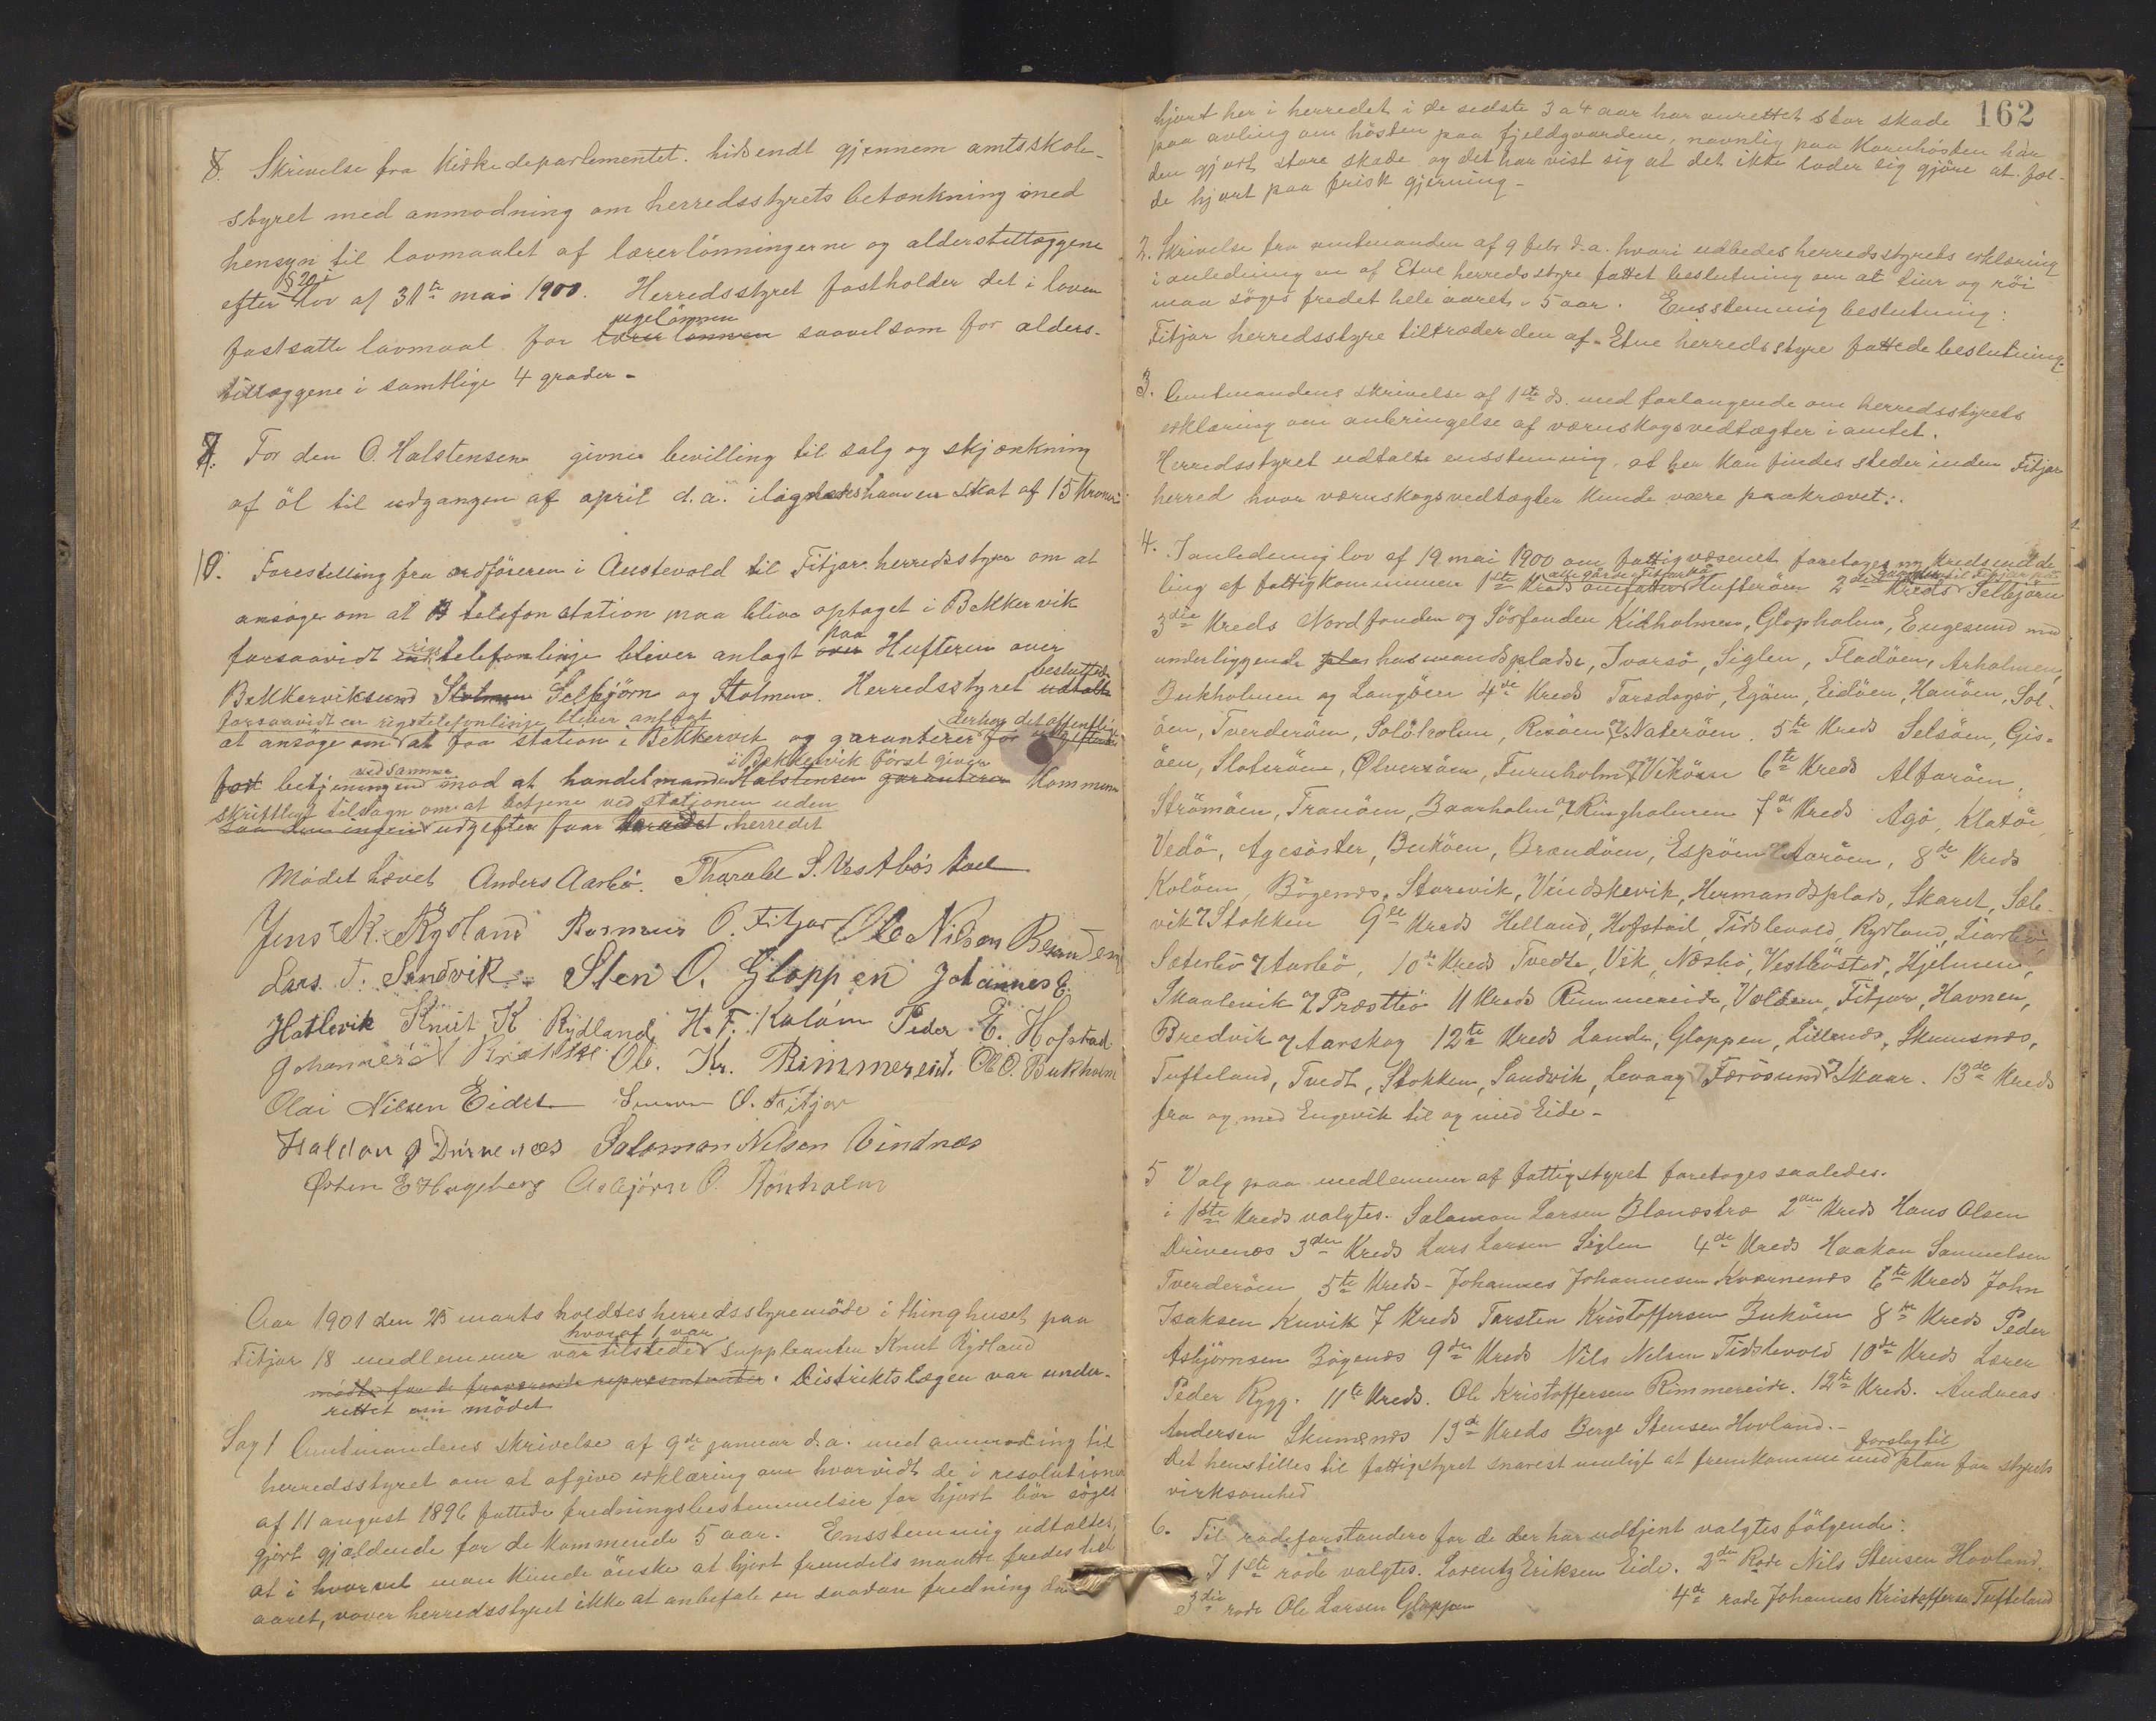 8. Skrivelse fra Kirkedepartementet. hidsendt gjennem amtsskole-
styret med anmodning om herredsstyrets betænkning med
hensyn til lavmaalet af lærerlønningerne og alderstillæggene
§ 20 i
efter lov af 31te mai 1900. Herredsstyret fastholder det i loven
ugelønnen
fastsatte lavmaal for lærerlønnen saavelsom for alders-
tillæggene i samtlige 4 grader -
9. For den O. Halstensen givne bevilling til salg og skjænkning
af öl til udgangen af april d.a. ilignedes han en skat af 15 Kroner
10. Forestilling fra ordföreren i Austevold til Fitjar herredsstyre om at
ansøge om at telefonstation maa blive optaget i Bekkervik
rigs paa
forsaavidt en telefonlinje bliver anlagt over Hufteren over
besluttede
Bekkerviksund Stolmen Selbjörn og Stolmen. Herredsstyret udtalte
forsaavidt en rigstelefonlinje bliver anlagt derhos det offentlige
at ansöge om at faa station i Bekkervik og garanterer for udgifterne
ved samme i Bekkervik først giver
fast betjeningen mod at handelsmand Halstensen garanterer Kommunen
skriftligt tilsagn om at betjene ved stationen uden
saa den ingen udgifter faar herredet
Mödet hævet Anders Aarbö. Tharald S. Vestbøstad
Jens N. Rydland Rasmus O. Fitjar Ole Nilsen Beranden
Lars T. Sandvik. Sten O. Gloppen Johannes E.
Hatlevik Knut K Rydland H. F. Kalöen Peder E. Hofstad
Johannes N Brekke Ole. Kr. Rimmereid. Ole O. Bukholm
Olai Nilsen Eidet Simon O. Fitjar
Haldor J Drivenes Salamon Nilsen Vindnæs
Østen E Hageberg Asbjörn O. Rönholm
Aar 1901 den 23 marts holdtes herredsstyremöde i thinghuset paa
hvoraf 1 var
Fitjar 18 medlemmer var tilstede suppleanten Knut Rydland
mödte for de fraværende repræsentanter. Distriktslægen var under-
rettet om mödet
Sag 1 Amtmandens skrivelse af 9de januar d.a. med anmodning til
herredsstyret om at afgive erklæring om hvorvidt de i resolutionen
af 11 august 1896 fattede fredningsbestemmelser for hjort bör söges
gjort gjældende for de kommende 5 aar. Ensstemmig udtaltes,
at i hvorvel man kunde önske at hjort fremdeles maatte fredes hele
aaret, vover herredsstyret ikke at anbefale en saadan fredning da
162
hjort her i herredet i de sidste 3 a 4 aar har anrettet stor skade
paa avling om hösten paa fjeldgaardene, navnlig paa Kornhösten har
den gjort store skade og det har vist sig at det ikke lader sig gjöre at fæl-
de hjort paa frisk gjerning -
2. Skrivelse fra amtmanden af 9 febr. d.a. hvori udbedes herredsstyrets erklæring
i anledning en af Etne herredsstyre fattet beslutning om at tiur og röi
maa söges fredet hele aaret i 5 aar. Ensstemmig beslutning:
Fitjar herredsstyre tiltræder den af Etne herredsstyre fattede beslutning.
3. Amtmandens skrivelse af 1ste ds. med forlangende om herredsstyrets
erklæring om anbringelse af værnskogsvedtægter i amtet.
Herredsstyret udtalte ensstemmig, at her kan findes steder inden Fitjar
herred hvor værnskogsvedtægter kunde være paakrævet.
4. I anledning lov af 19 mai 1900 om fattigvæsenet foretages ny kredsindde
ling af fattigkommunen 1ste Kreds omfatter Hufteröen 2den Kreds Selbjörn
3die Kreds Nordfonden og Sörfonden Kidholmen, Glopholm, Engesund med
underliggende plas husmandspladse, Ivarsö, Siglen, Fladöen, Arholmen,
Bukholmen og Langöen 4de Kreds Torsdagsö, Egöen, Eidöen, Hanöen, Sol-
öen, Tverderöen, Solöholm, Risöen og Nateröen. 5te Kreds Selsöen, Gis-
öen, Sloteröen, Ølversöen, Furuholm og Viköen 6te Kreds Alforöen,
Strömöen, Tranöen, Baarholm og Ringholmen 7de Kreds Agö, Klatöe
Vedö, Agesöster, Buköen, Brandöen, Espöen Aaröen, 8de Kreds
Kolöen, Bögenæs, Storevik, Vindskevik, Hermandsplads, Skaret, Sæle-
vik & Stokken 9de Kreds Helland, Hofstad, Tidslevold, Rydland, Liarbö,
Sæterbö & Aarbö, 10de Kreds Tvedte, Vik, Næsbö, Vestböstad, Hjelmen,
Skaalevik & Præstbö 11 Kreds Rimmereide, Volden, Fitjar, Havnen,
Bredvik & Aarskog 12te Kreds Lande, Gloppen, Lillenæs, Skumsnæs,
Tufteland, Tvedt, Stokken, Sandvik, Levaag Færösund & Skaar. 13de Kreds
fra og med Engevik til og med Eide -
5 Valg paa medlemmer af fattigstyret foretoges saaledes.
i 1ste Kreds valgtes. Salamon Larsen Blænæstræ 2den Kreds Hans Olsen
Drivenes 3den Kreds Lars Larsen Siglen 4de Kreds Haakon Samuelsen
Tverderöen 5te Kreds - Johannes Johannesen Kvernenæs 6te Kreds John
Isaksen Kuvik 7 Kreds Torsten Kristoffersen Buköen 8de Kreds Peder
Asbjörnsen Bögenæs 9de Kreds Nils Nilsen Tidslevold 10de Kreds Lærer
Peder Rygg. 11te Kreds. Ole Kristoffersen Rimmereide. 12te Kreds. Andreas
Andersen Skumsnæs 13de Kreds Berge Stensen Hovland. -
forslag til
Det henstilles til fattigstyret snarest muligt at fremkomme med plan for styrets
virksomhed
6. Til rodeforstandere for de der har udtjent valgtes fölgende:
I 1ste rode valgtes. Lorentz Eriksen Eide. 2den Rode Nils Stensen Hovland.
3die rode Ole Larsen Gloppen 4de rode Johannes Kristoffersen Tufteland